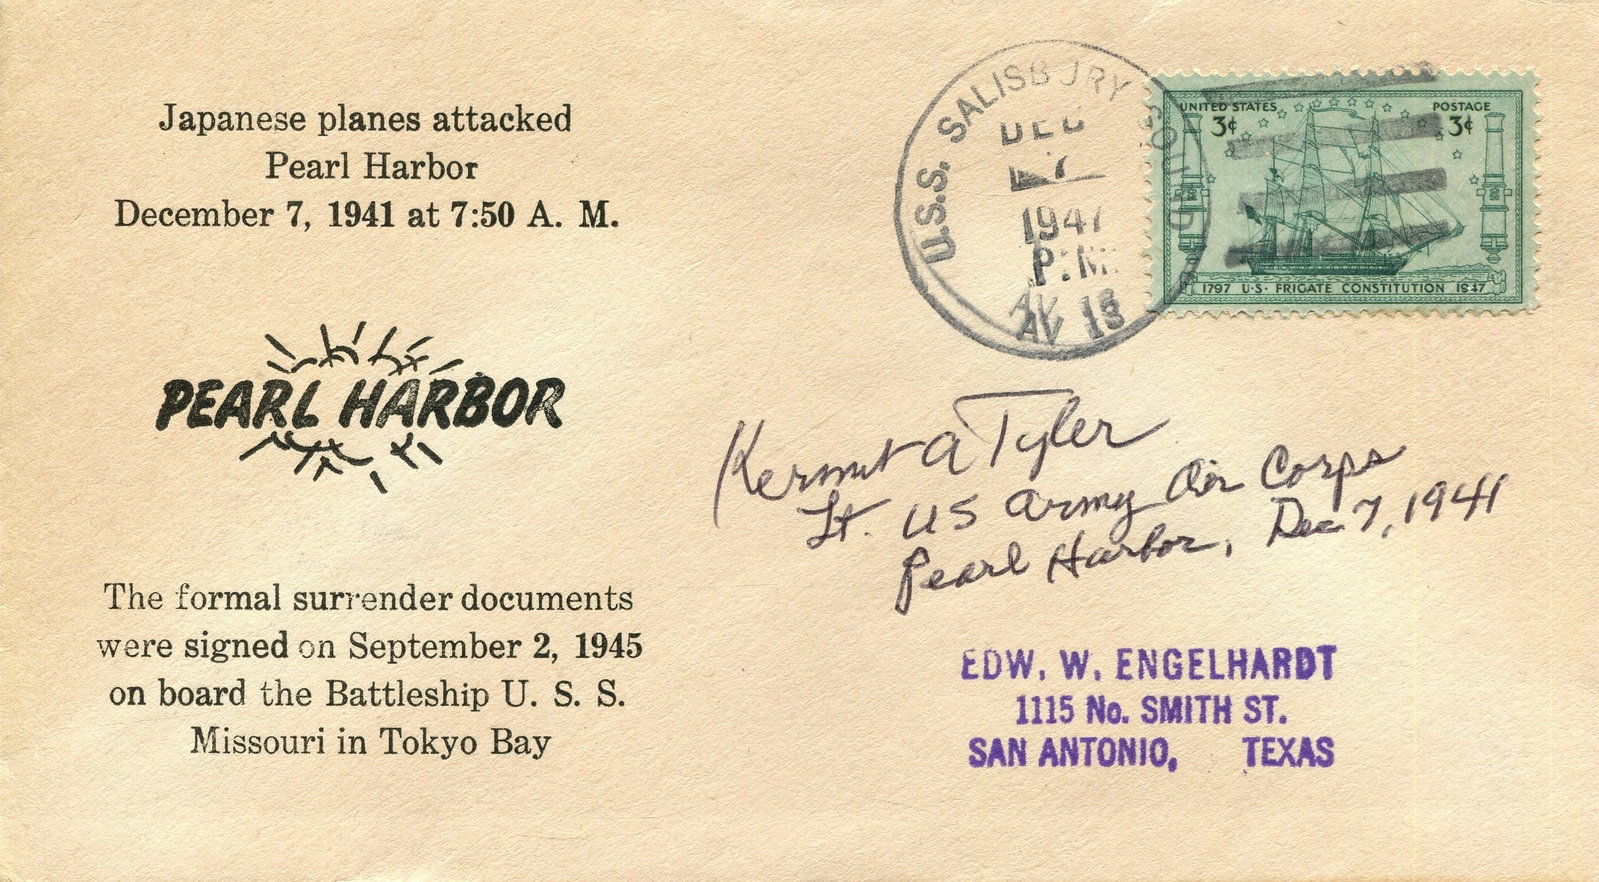 Japanese planes attacked
Pearl Harbor
December 7, 1941 at 7:50 A. M.
PEARL HARBOR
The formal surrender documents
were signed on September 2, 1945
on board the Battleship U. S. S.
Missouri in Tokyo Bay
U.S.S. SALISBURY SOUND
DEC
7
1947
P.M.
AV 13
UNITED STATES POSTAGE
3¢ 3¢
1797 U.S. FRIGATE CONSTITUTION 1947
Kermit A Tyler
Lt. US Army Air Corps
Pearl Harbor, Dec 7, 1941
EDW. W. ENGELHARDT
1115 No. SMITH ST.
SAN ANTONIO, TEXAS